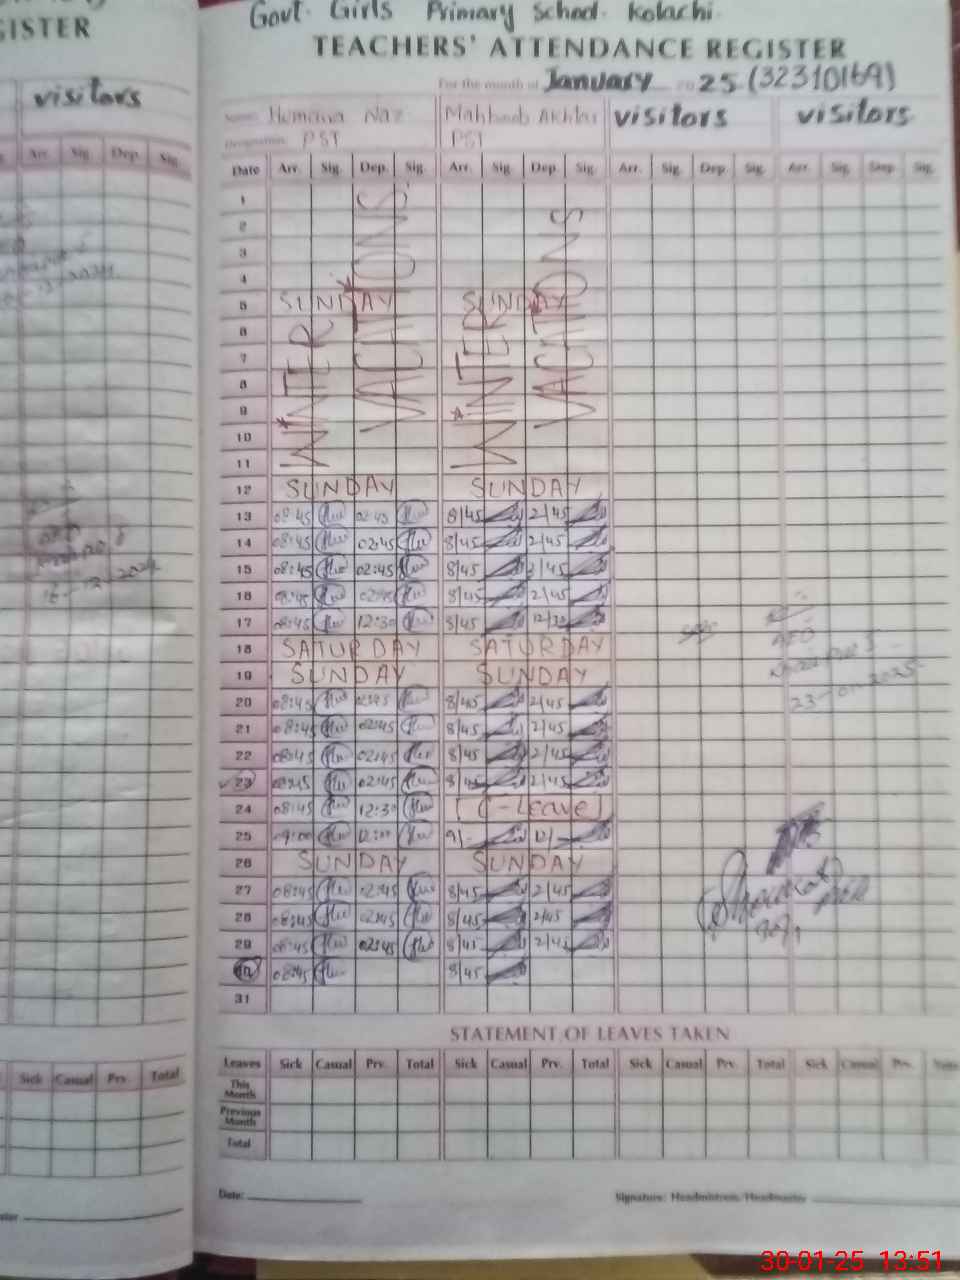 GISTER
visitors
Arr. Sig. Dep. Sig.
Sick Casual Prv. Total
Govt. Girls Primary School. Kolachi.
TEACHERS' ATTENDANCE REGISTER
For the month of January 2025 (32310169)
Name: Humaira Naz Mahboob Akhtar visitors visitors
Designation: PST PST
Date Arr. Sig. Dep. Sig. Arr. Sig. Dep. Sig. Arr. Sig. Dep. Sig. Arr. Sig. Dep. Sig.
WINTER VACATIONS WINTER VACATIONS
1
2
3
4
5 SUNDAY SUNDAY
6
7
8
9
10
11
12 SUNDAY SUNDAY
13 08:45 02:45 8/45 2/45
14 08:45 02:45 8/45 2/45
15 08:45 02:45 8/45 2/45
16 08:45 02:45 8/45 2/45
17 08:45 12:30 8/45 12/30
18 SATURDAY SATURDAY
19 SUNDAY SUNDAY
20 08:45 02:45 8/45 2/45
21 08:45 02:45 8/45 2/45
22 08:45 02:45 8/45 2/45
23 08:45 02:45 8/45 2/45
23-01-2025
24 08:45 12:30 C-Leave
25 09:00 12:00 9/- 12/-
26 SUNDAY SUNDAY
27 08:45 02:45 8/45 2/45
28 08:45 02:45 8/45 2/45
29 08:45 02:45 8/45 2/45
08:45 8/45
31
STATEMENT OF LEAVES TAKEN
Leaves Sick Casual Prv. Total Sick Casual Prv. Total Sick Casual Prv. Total Sick Casual Prv. Total
This Month
Previous Month
Total
Date: Signature: Headmistress/Headmaster
30-01-25 13:51